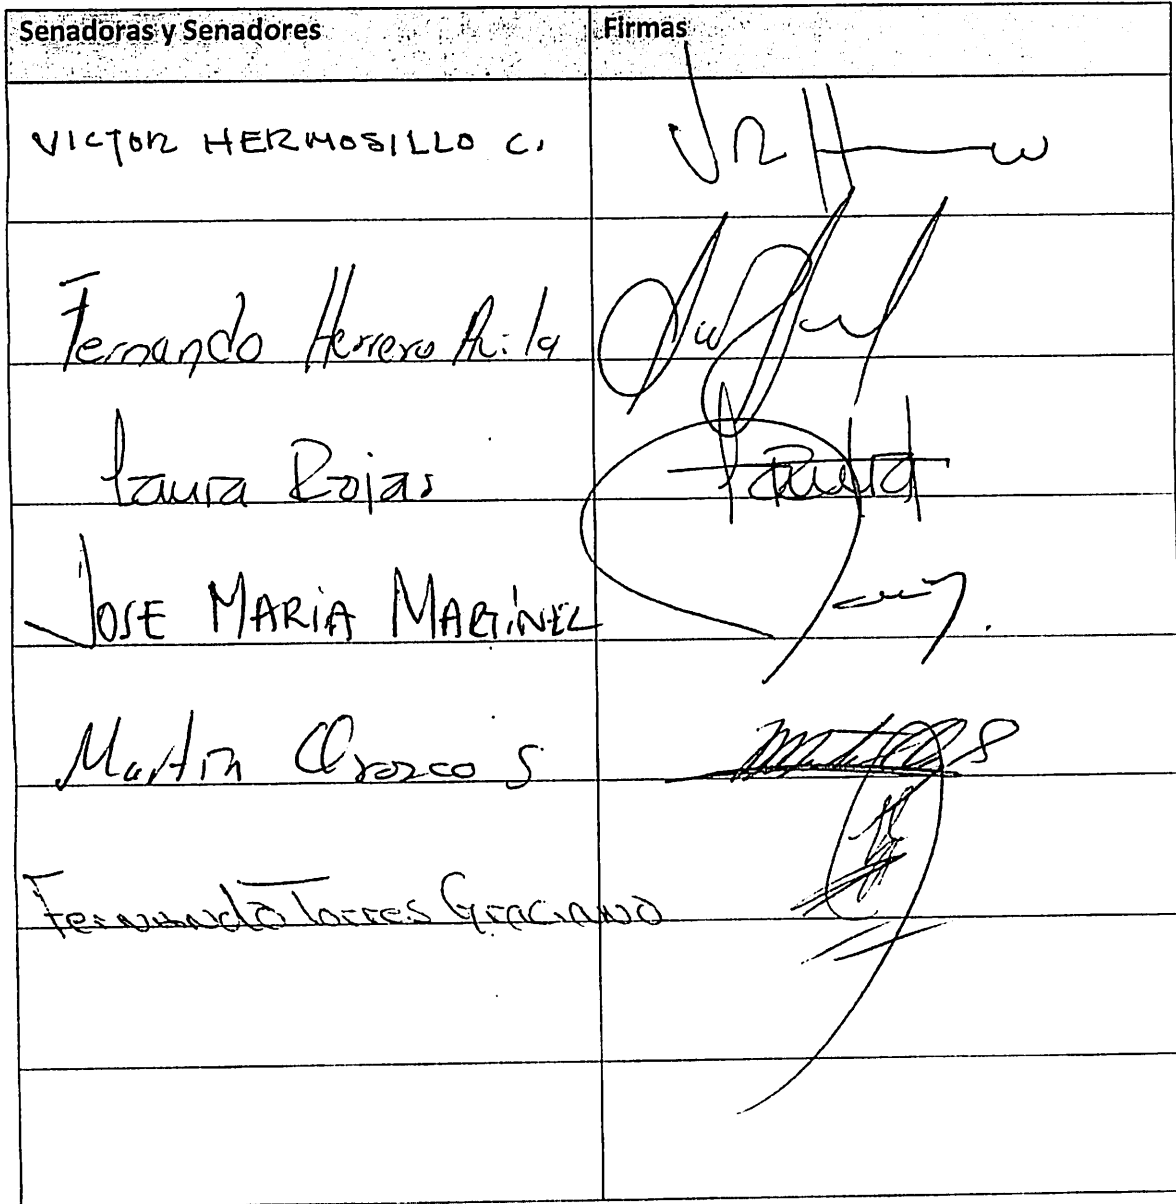 Senadoras y Senadores Firmas
VICTOR HERMOSILLO C.
Fernando Herrera Avila
Laura Rojas
JOSE MARIA MARTÍNEZ
Martin Orozco S
Fernando Torres Graciano